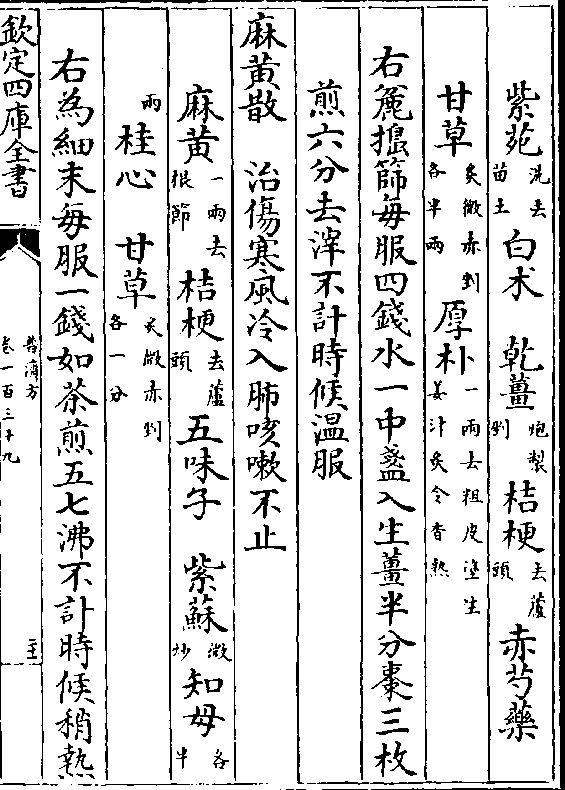 紫菀洗去苗土 白术 乾薑炮製剉 桔梗去蘆頭 赤芍藥
甘草炙微赤剉各半兩 厚朴一兩去粗皮塗生姜汁炙令香熟
右麄搗篩每服四錢水一中盞入生薑半分棗三枚
煎六分去滓不計時候溫服
麻黄散 治傷寒風冷入肺咳嗽不止
麻黄一兩去根節 桔梗去蘆頭 五味子 紫蘇微炒 知母各半
兩 桂心 甘草炙微赤剉各一分
右為細末每服一錢如茶煎五七沸不計時候稍熱
欽定四庫全書
普濟方
卷一百三十九